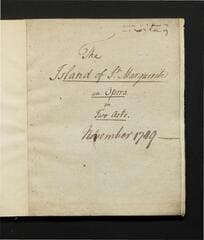 The
Island of St. Marguerite
an Opera
in
Two Acts.
November 1789